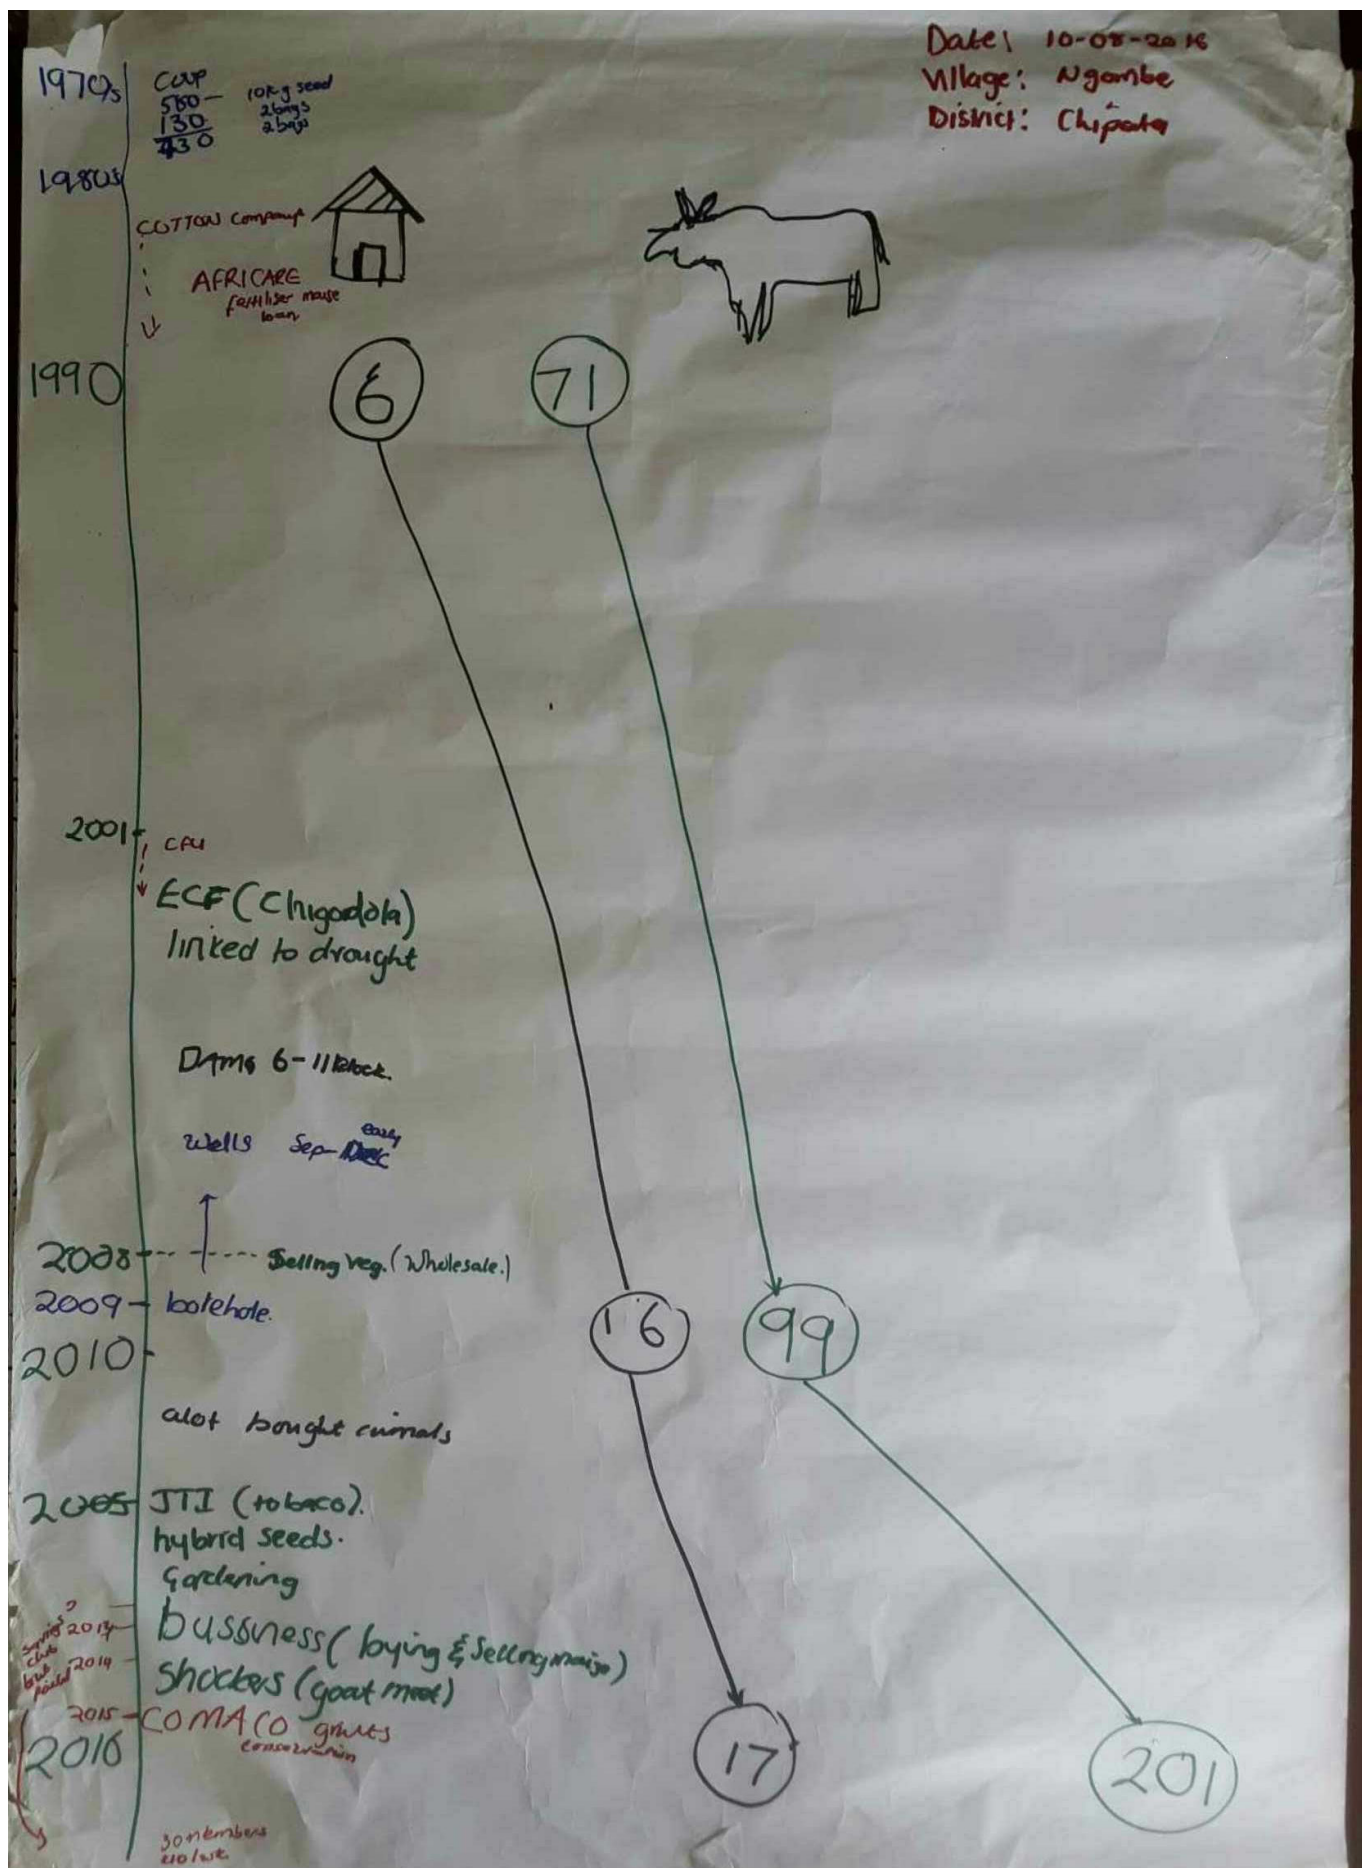 Date: 10-08-2016
Village: Ngombe
District: Chipata
1970s
COUP
560 - 10kg seed
130 2bags
430 2bags
1980s
COTTON Company
AFRICARE
fertiliser maize
loan
1990
6 71
2001
CFU
ECF (Chigodola)
linked to drought
DAMS 6-11 Block.
Wells Sep- early Dec
2008 Selling veg. (Wholesale.)
2009 - borehole.
16 99
2010
alot bought animals
2005 JTI (tobaco).
hybrid seeds.
Gardening
2013 bussness (buying & Selling maize)
savings
club
but
failed
2014
Shockers (goat meat)
2015 - COMACO grants
conservation
2016
17 201
30 members